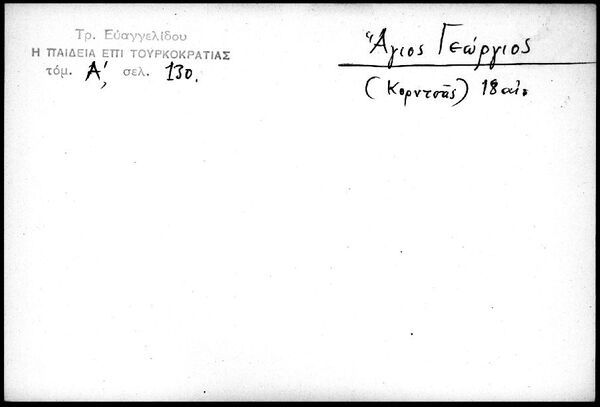 Τρ. Εὐαγγελίδου
Η ΠΑΙΔΕΙΑ ΕΠΙ ΤΟΥΡΚΟΚΡΑΤΙΑΣ
τόμ. Α΄, σελ. 130.
Ἅγιος Γεώργιος
(Κορντσᾶς) 18 αἰ.